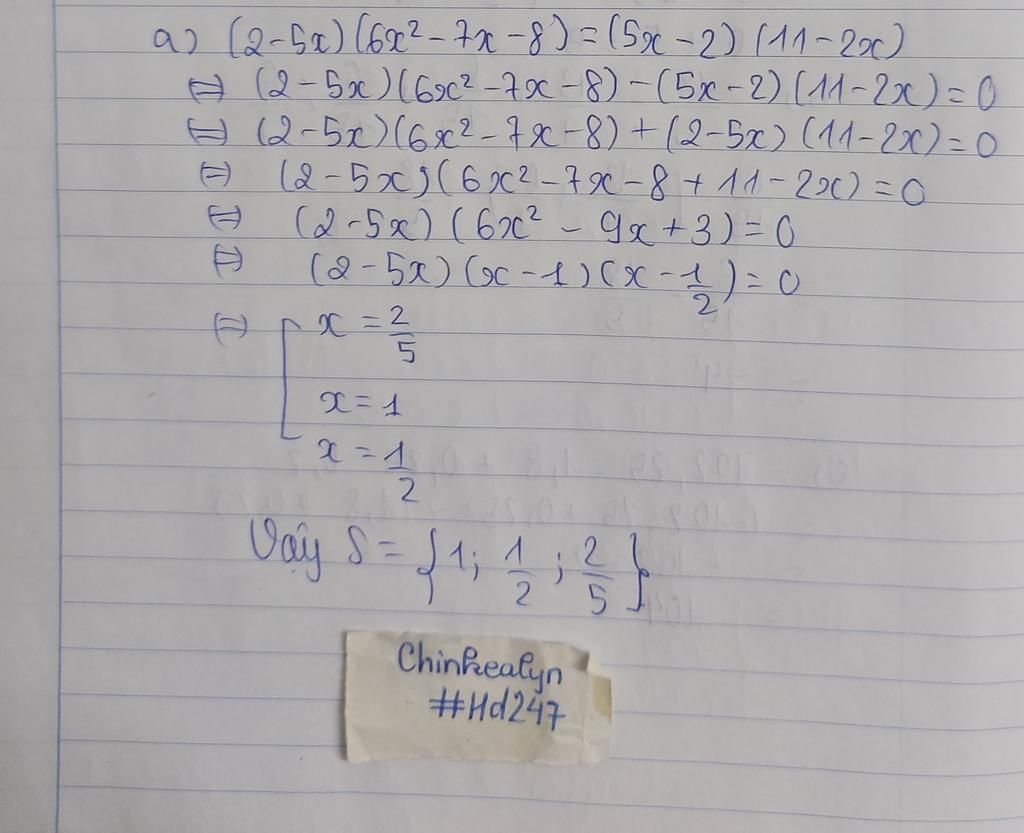 a) (2-5x)(6x²-7x-8)=(5x-2)(11-2x)
⇔ (2-5x)(6x²-7x-8)-(5x-2)(11-2x)=0
⇔ (2-5x)(6x²-7x-8)+(2-5x)(11-2x)=0
⇔ (2-5x)(6x²-7x-8+11-2x)=0
⇔ (2-5x)(6x²-9x+3)=0
⇔ (2-5x)(x-1)(x-1/2)=0
⇔ [ x=2/5
x=1
x=1/2
Vậy S={1; 1/2; 2/5}
Chinkealyn
#Hd247